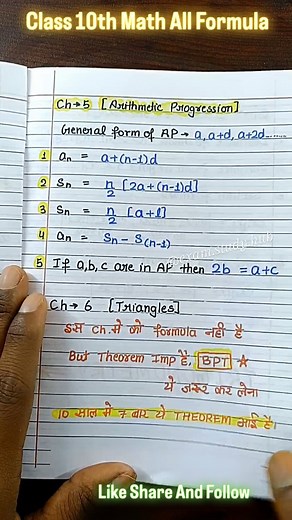 Class 10th Math All Formula
Ch→5 [Arithmetic Progression]
General form of AP → a, a+d, a+2d........
1 an = a+(n-1)d
2 Sn = n/2 [2a+(n-1)d]
3 Sn = n/2 [a+l]
4 an = Sn - S(n-1)
5 If a,b,c are in AP then 2b = a+c
Ch→ 6 [Triangles]
इस Ch. में को formula नहीं है
But Theorem Imp है, BPT ☆
ये जरूर कर लेना
10 साल में 7 बार ये THEOREM आई है।
Like Share And Follow